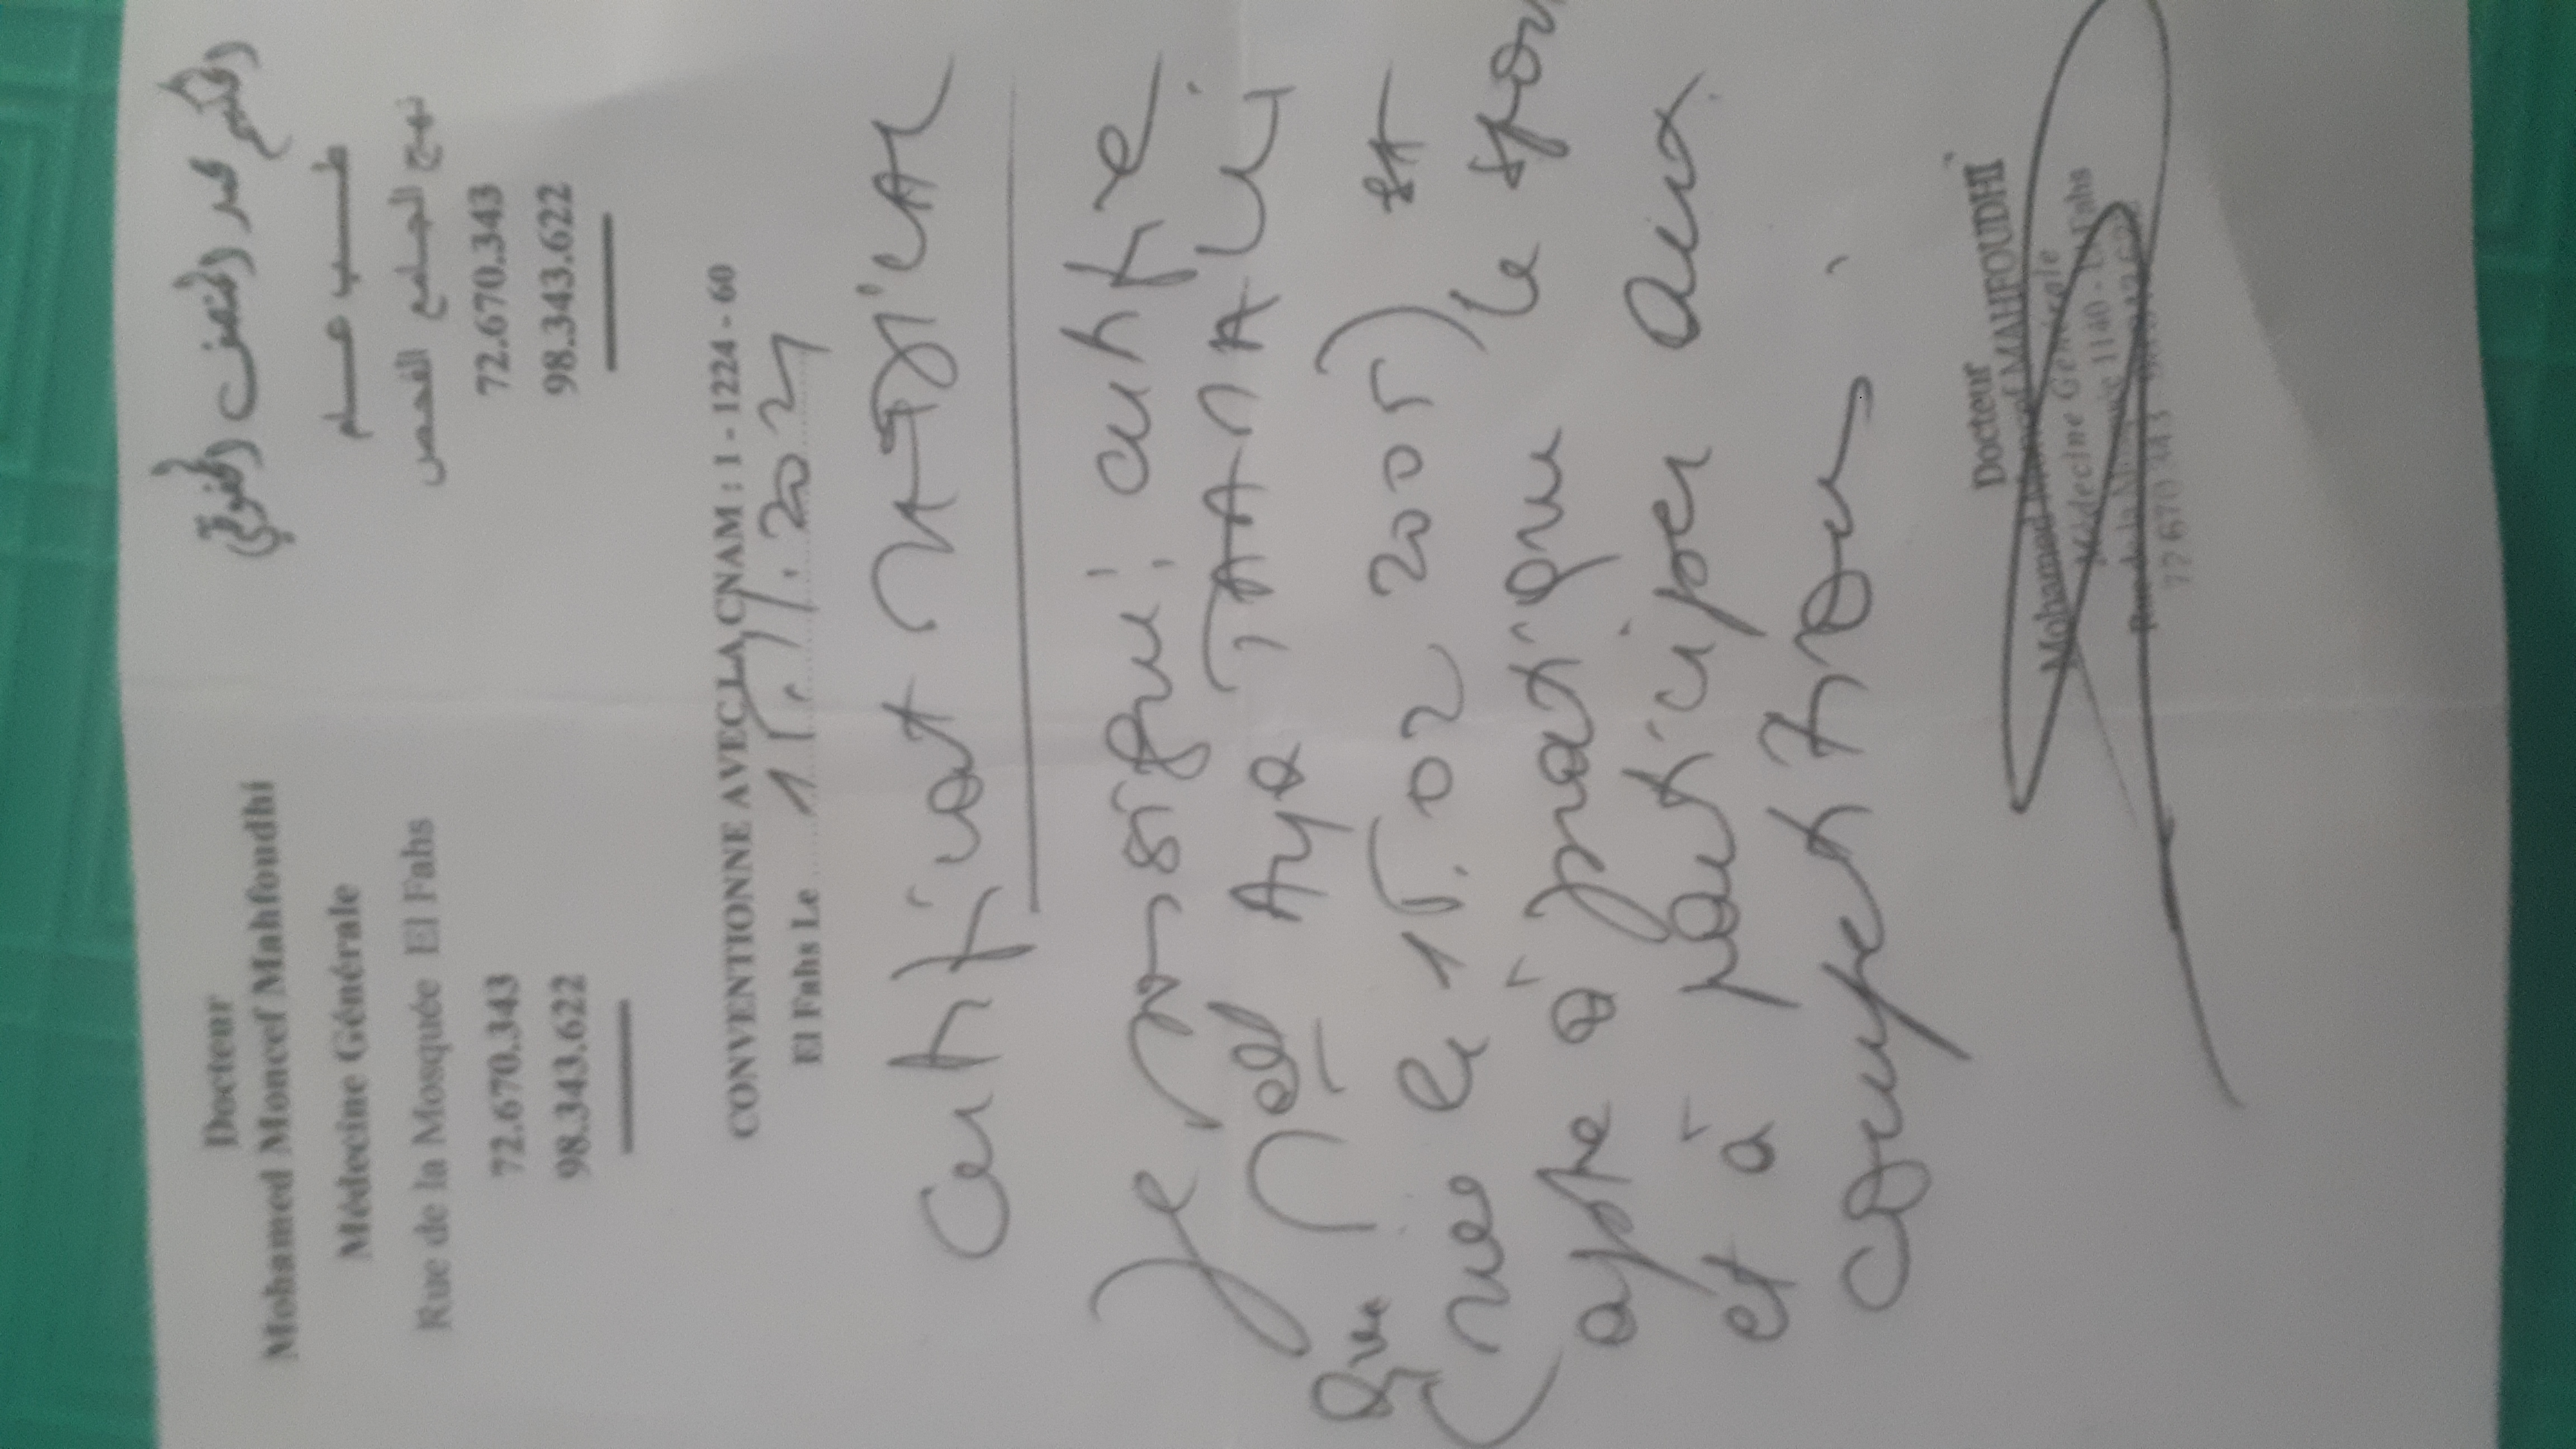 Docteur
Mohamed Moncef Mahfoudhi
Médecine Générale
Rue de la Mosquée El Fahs
72.670.343
98.343.622
الحكيم محمد المنصف المحفوظي
طبيب عام
نهج الجامع الفحص
72.670.343
98.343.622
CONVENTIONNE AVEC LA CNAM : 1 - 1224 - 60
El Fahs Le 15.11.2021
Certificat Médical
Je soussigné certifie
que Mel Aya
(née le 15.02 2005) est
apte à pratique le sport
et à participer aux
compétition.
Docteur
Mohamed Moncef MAHFOUDHI
Médecine Générale
Rue de la Mosquée 1140 - El Fahs
72 670 343